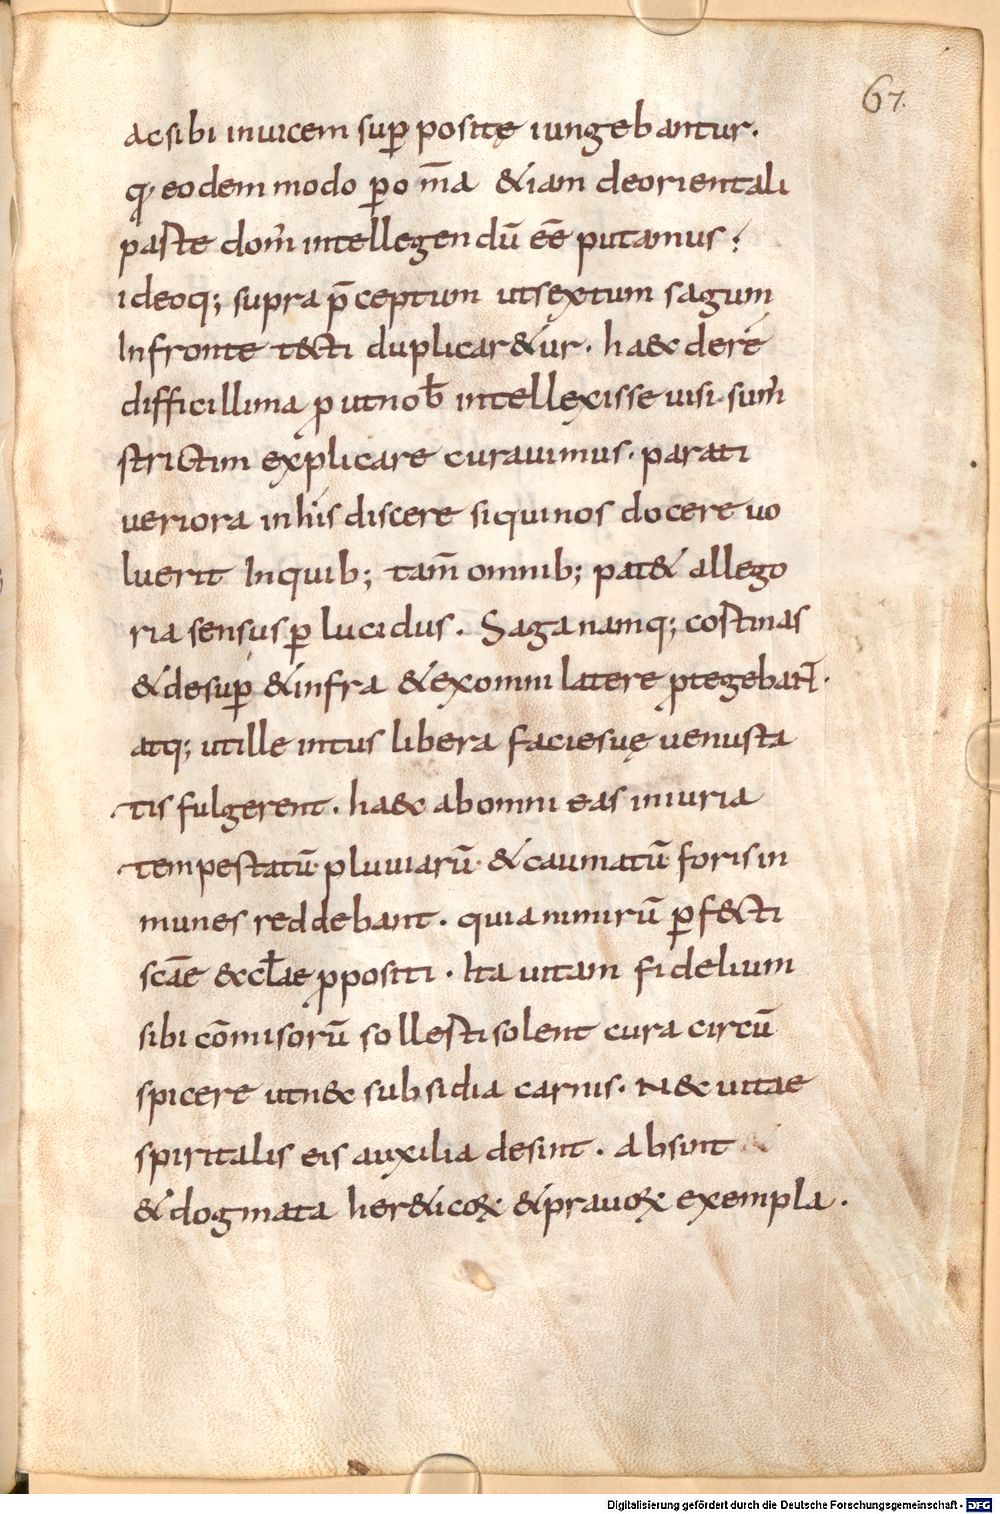 67.
acsibi inuicem sup̲ positę iungebantur.
q̵ eodem modo p̲ om̄a &iam deorientali
paste dom̄ intellegendū eē̄ putamus;
ideoq; supra p̄ceptum utsextum sagum
Infronte t&cti duplicar&ur. ha&c dere
difficillima putnob̄ intellexisse uisi sum̄
strictim explicare curauimus. parati
ueriora inhis discere siquinos docere uo
luerit Inquib; tam̄ omnib; pat& allego
ria sensus p̲ lucidus. Saga namq; cortinas
&desup̲ &infra &exomni latere ptegebant.
atq; utille intus libera faciesuę uenusta
tis fulgerent. ha&c abomni eas iniuria
tempestatū pluuiarū &caumatū forisin
munes reddebant. quianimirū p̲f&cti
scāe &ccl̄ae ppositi. Ita uitam fidelium
sibi cōmisorū sollesti solent cura circū
spicere utn&c subsidia carnis. N&c uitae
spiritalis eis auxilia desint. absint
&dogmata her&icoꝝ &prauoꝝ exempla.
Digitalisierung gefördert durch die Deutsche Forschungsgemeinschaft - DFG